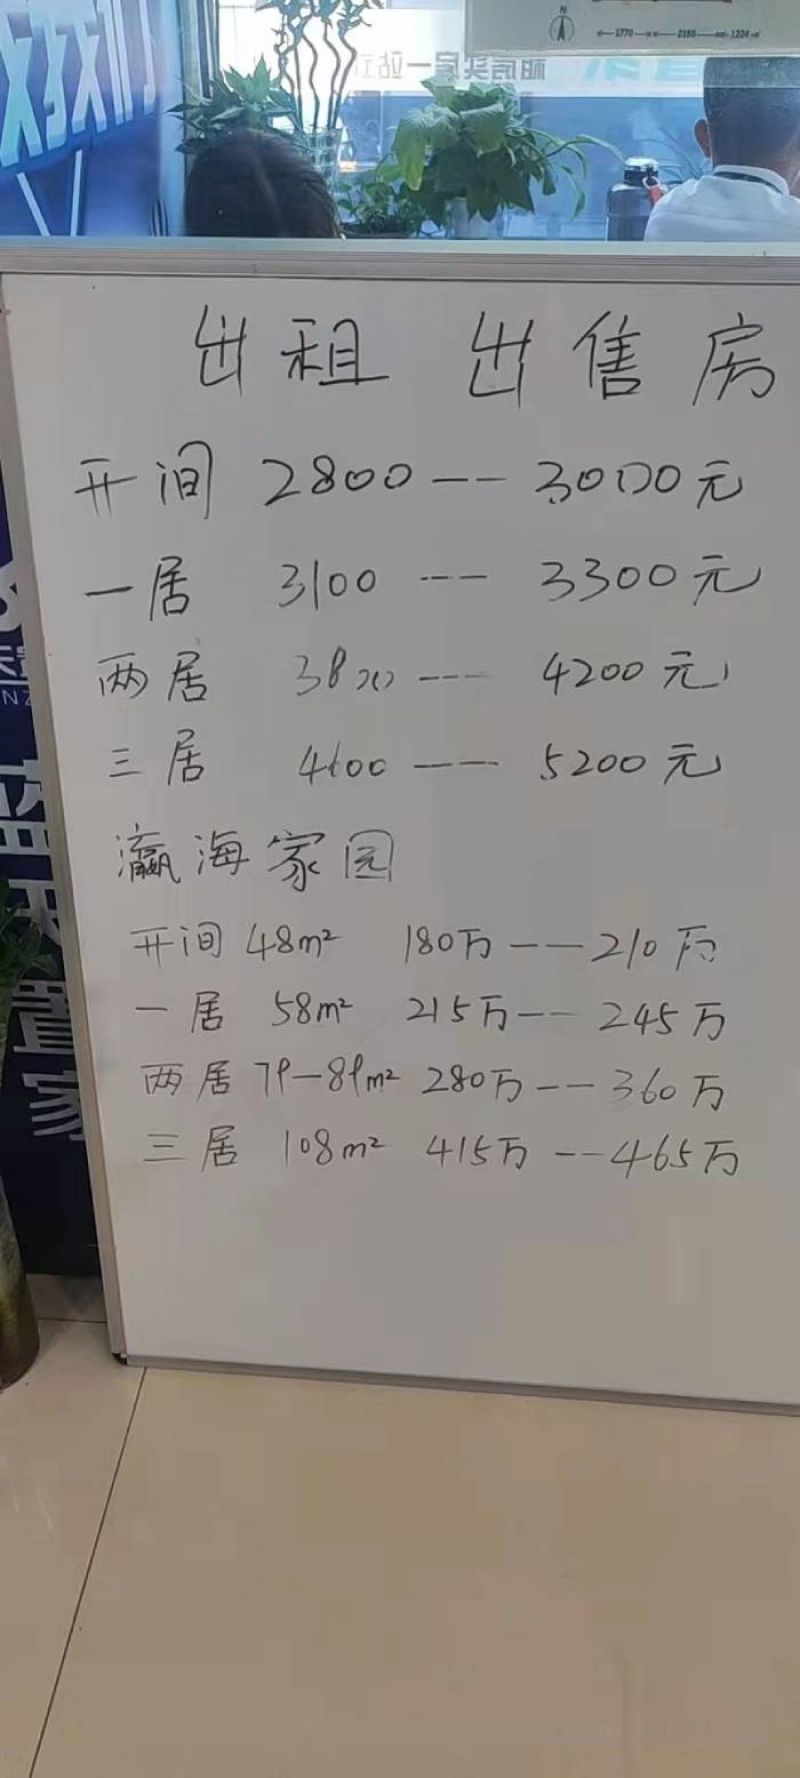 N
1770 2180 1224
租房买房一站式
出租 出售房
开间 2800 -- 3000元
一居 3100 --- 3300元
两居 3800 --- 4200元
三居 4600 --- 5200元
瀛海家园
开间 48m² 180万 --- 210万
一居 58m² 215万 --- 245万
两居 79-89m² 280万 --- 360万
三居 108m² 415万 --- 465万